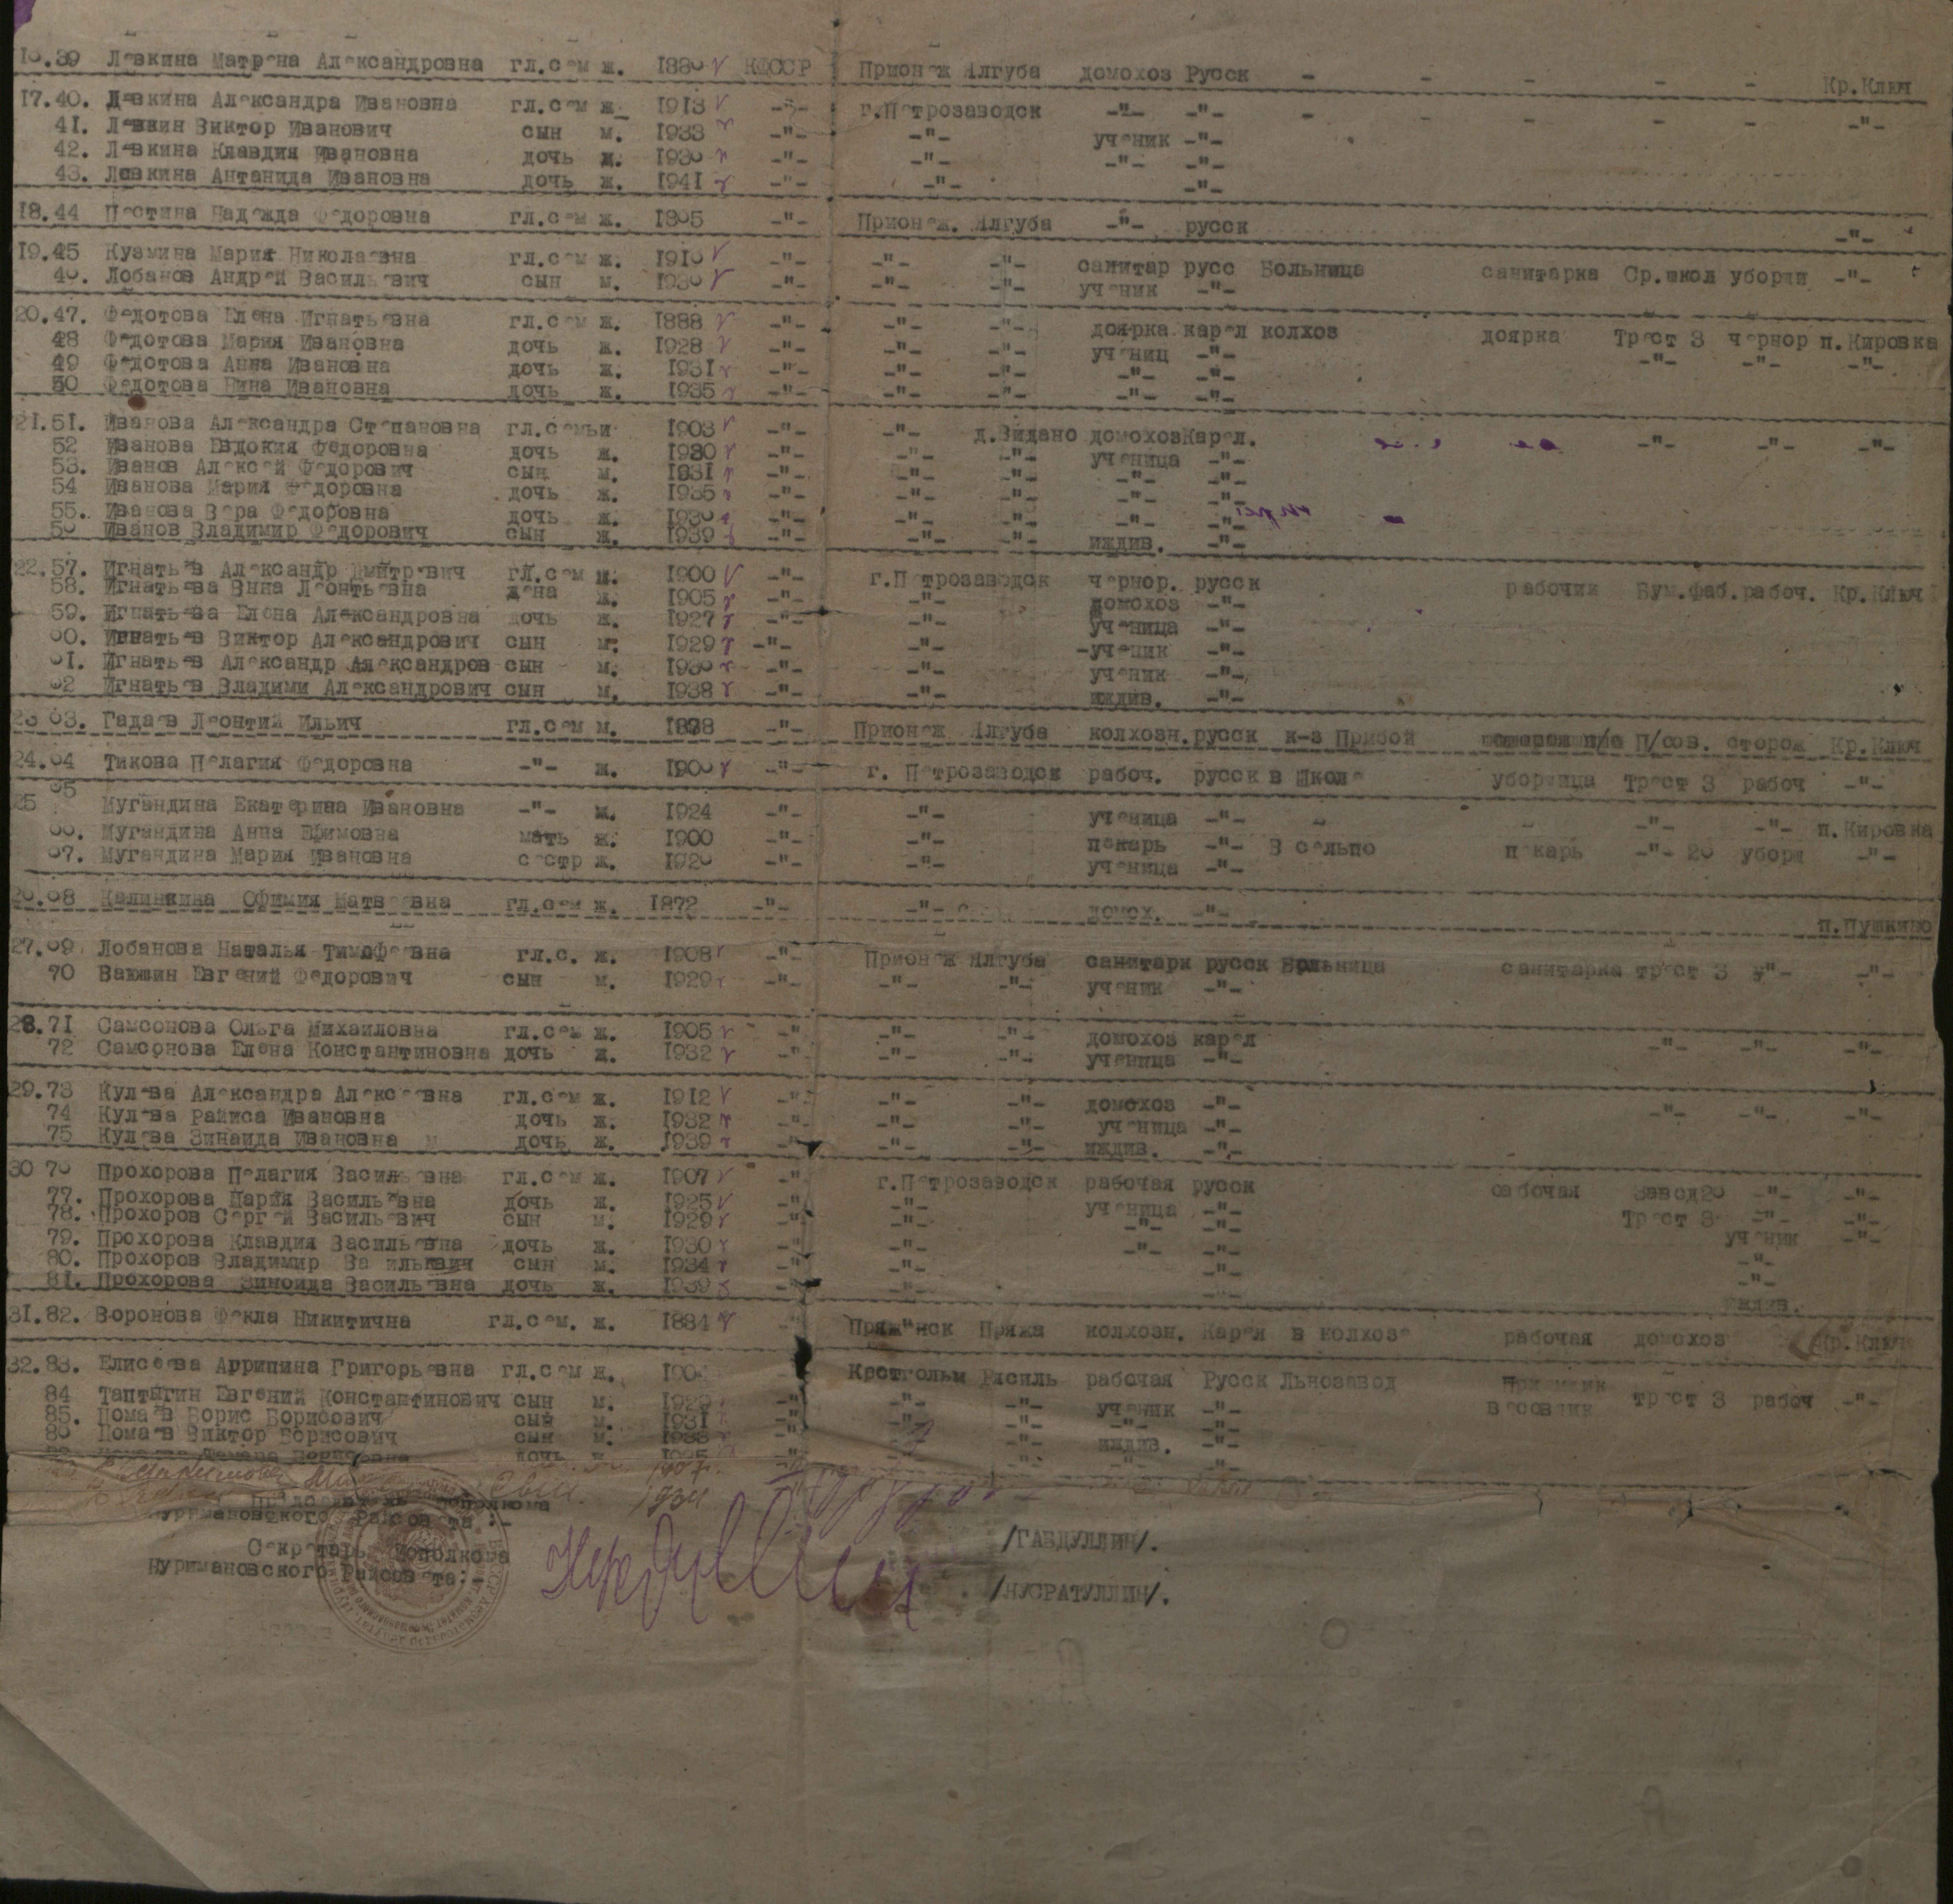 16.39 Левкина Матрена Александровна гл.сем ж. 1886 КФССР Прионеж Ялгуба домохоз Русск - - - - - Кр.Ключ
17.40. Левкина Александра Ивановна гл.сем ж. 1913 -"- г.Петрозаводск -"- -"- - - - - - -"-
41. Левкин Виктор Иванович сын м. 1933 -"- -"- ученик -"-
42. Левкина Клавдия Ивановна дочь ж. 1936 -"- -"- -"- -"-
43. Левкина Антанида Ивановна дочь ж. 1941 -"- -"- -"-
18.44 Пестина Надежда Федоровна гл.сем ж. -"- Прионеж. Ялгуба -"- русск -"-
19.45 Кузмина Мария Николаевна гл.сем ж. 1910 -"- -"- -"- санитар русс Больница санитарка Ср.школ уборщи -"-
46. Лобанов Андрей Васильевич сын м. 1936 -"- -"- -"- ученик -"-
20.47. Федотова Елена Игнатьевна гл.сем ж. 1888 -"- -"- -"- доярка карел колхоз доярка Трест 3 чернор п.Кировка
48 Федотова Мария Ивановна дочь ж. 1928 -"- -"- -"- учениц -"- -"- -"- -"-
49 Федотова Анна Ивановна дочь ж. 1931 -"- -"- -"- -"- -"-
50 Федотова Нина Ивановна дочь ж. 1935 -"- -"- -"- -"- -"-
21.51. Иванова Александра Степановна гл.семьи 1903 -"- -"- д.Видано домохоз Карел. -"- -"- -"-
52 Иванова Евдокия Федоровна дочь ж. 1930 -"- -"- -"- ученица -"-
53. Иванов Алексей Федорович сын м. 1931 -"- -"- -"- -"- -"-
54 Иванова Мария Федоровна дочь ж. 1935 -"- -"- -"- -"- -"-
55. Иванова Вера Федоровна дочь ж. 1936 -"- -"- -"- -"- -"-
56 Иванов Владимир Федорович сын ж. 1939 -"- -"- -"- иждив. -"-
22.57. Игнатьев Александр Дмитревич гл.сем м. 1900 -"- г.Петрозаводск чернор. русск рабочий Бум.фаб.рабоч. Кр.Ключ
58. Игнатьева Анна Леонтьевна жена ж. 1905 -"- -"- домохоз -"-
59. Игнатьева Елена Александровна дочь ж. 1927 -"- -"- ученица -"-
60. Игнатьев Виктор Александрович сын м. 1929 -"- -"- -ученик -"-
61. Игнатьев Александр Александров сын м. 1936 -"- -"- ученик -"-
62 Игнатьев Владими Александрович сын м. 1938 -"- -"- иждив. -"-
23 63. Гадаев Леонтий Ильич гл.сем м. -"- Прионеж Ялгуба колхозн.русск к-з Прибой П/сов. сторож Кр.Ключ
24.64 Тикова Пелагия Федоровна -"- ж. 1900 -"- г. Петрозаводск рабоч. русск в Школе уборщица Трест 3 рабоч -"-
25 65 Мугандина Екатерина Ивановна -"- ж. 1924 -"- -"- ученица -"- - - -"- -"- п.Кировка
66. Мугандина Анна Ефимовна мать ж. 1900 -"- -"- пекарь -"- В сельпо пекарь -"- 26 уборщ -"-
67. Мугандина Мария Ивановна сестр ж. 1926 -"- -"- ученица -"-
26.68 Калинкина Офимия Матвеевна гл.сем ж. 1872 -"- -"- домох. -"- п.Пушкино
27.69 Лобанова Наталья Тимофеевна гл.с. ж. 1908 -"- Прионеж Ялгуба санитарк русск Больница санитарка трест 3 у"- -"-
70 Ваюшин Евгений Федорович сын м. 1929 -"- -"- -"- ученик -"-
28.71 Самсонова Ольга Михаиловна гл.сем ж. 1905 -"- -"- -"- домохоз карел -"- -"- -"-
72 Самсонова Елена Константиновна дочь ж. 1932 -"- -"- -"- ученица -"-
29.73 Кулева Александра Алексеевна гл.сем ж. 1912 -"- -"- -"- домохоз -"- -"- -"- -"-
74 Кулева Раиса Ивановна дочь ж. 1932 -"- -"- -"- ученица -"-
75 Кулева Зинаида Ивановна дочь ж. 1939 -"- -"- -"- иждив. -"-
30 76 Прохорова Пелагия Васильевна гл.сем ж. 1907 -"- г.Петрозаводск рабочая русск рабочая Завод26 -"- -"-
77. Прохорова Мария Васильевна дочь ж. 1925 -"- -"- ученица -"- Трест 3 -"- -"-
78. Прохоров Сергей Васильевич сын м. 1929 -"- -"- -"- -"- ученик -"-
79. Прохорова Клавдия Васильевна дочь ж. 1930 -"- -"- -"- -"- -"-
80. Прохоров Владимир Васильевич сын м. 1934 -"- -"- -"-
81. Прохорова Зиноида Васильевна дочь ж. 1939 -"- -"- -"- иждив.
31.82. Воронова Фекла Никитична гл.сем. ж. 1884 -"- Пряжинск Пряжа колхозн. Карел в колхозе рабочая домохоз Кр.Ключ
32.83. Елисеева Аррипина Григорьевна гл.сем ж. Кестгольм Рисиль рабочая Русск Льнозавод Приемщик весовщик трест 3 рабоч -"-
84 Таптыгин Евгений Константинович сын м. -"- -"- -"- ученик -"-
85. Помаев Борис Борисович сын м. 1931 -"- -"- -"- -"- -"-
86 Помаев Виктор Борисович сын м. 1933 -"- -"- -"- иждив. -"-
Борисовна дочь ж. -"- -"- -"- -"-
1907
1934
Председатель Исполкома
Нуримановского Райсовета :-
/ГАБДУЛЛИН/.
Секретарь Исполкома
Нуримановского Райсовета:-
/НУСРАТУЛЛИН/.